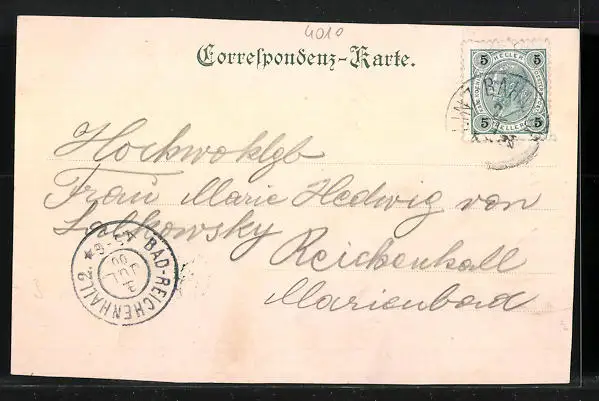 4010
Correspondenz-Karte.
5 HELLER 5
5 HELLER 5
LINZ BAHN
Hochwohlgb
Frau Marie Hedwig von
Sulkowsky
Reichenhall
Marienbad
BAD-REICHENHALL 2.
JUL
00